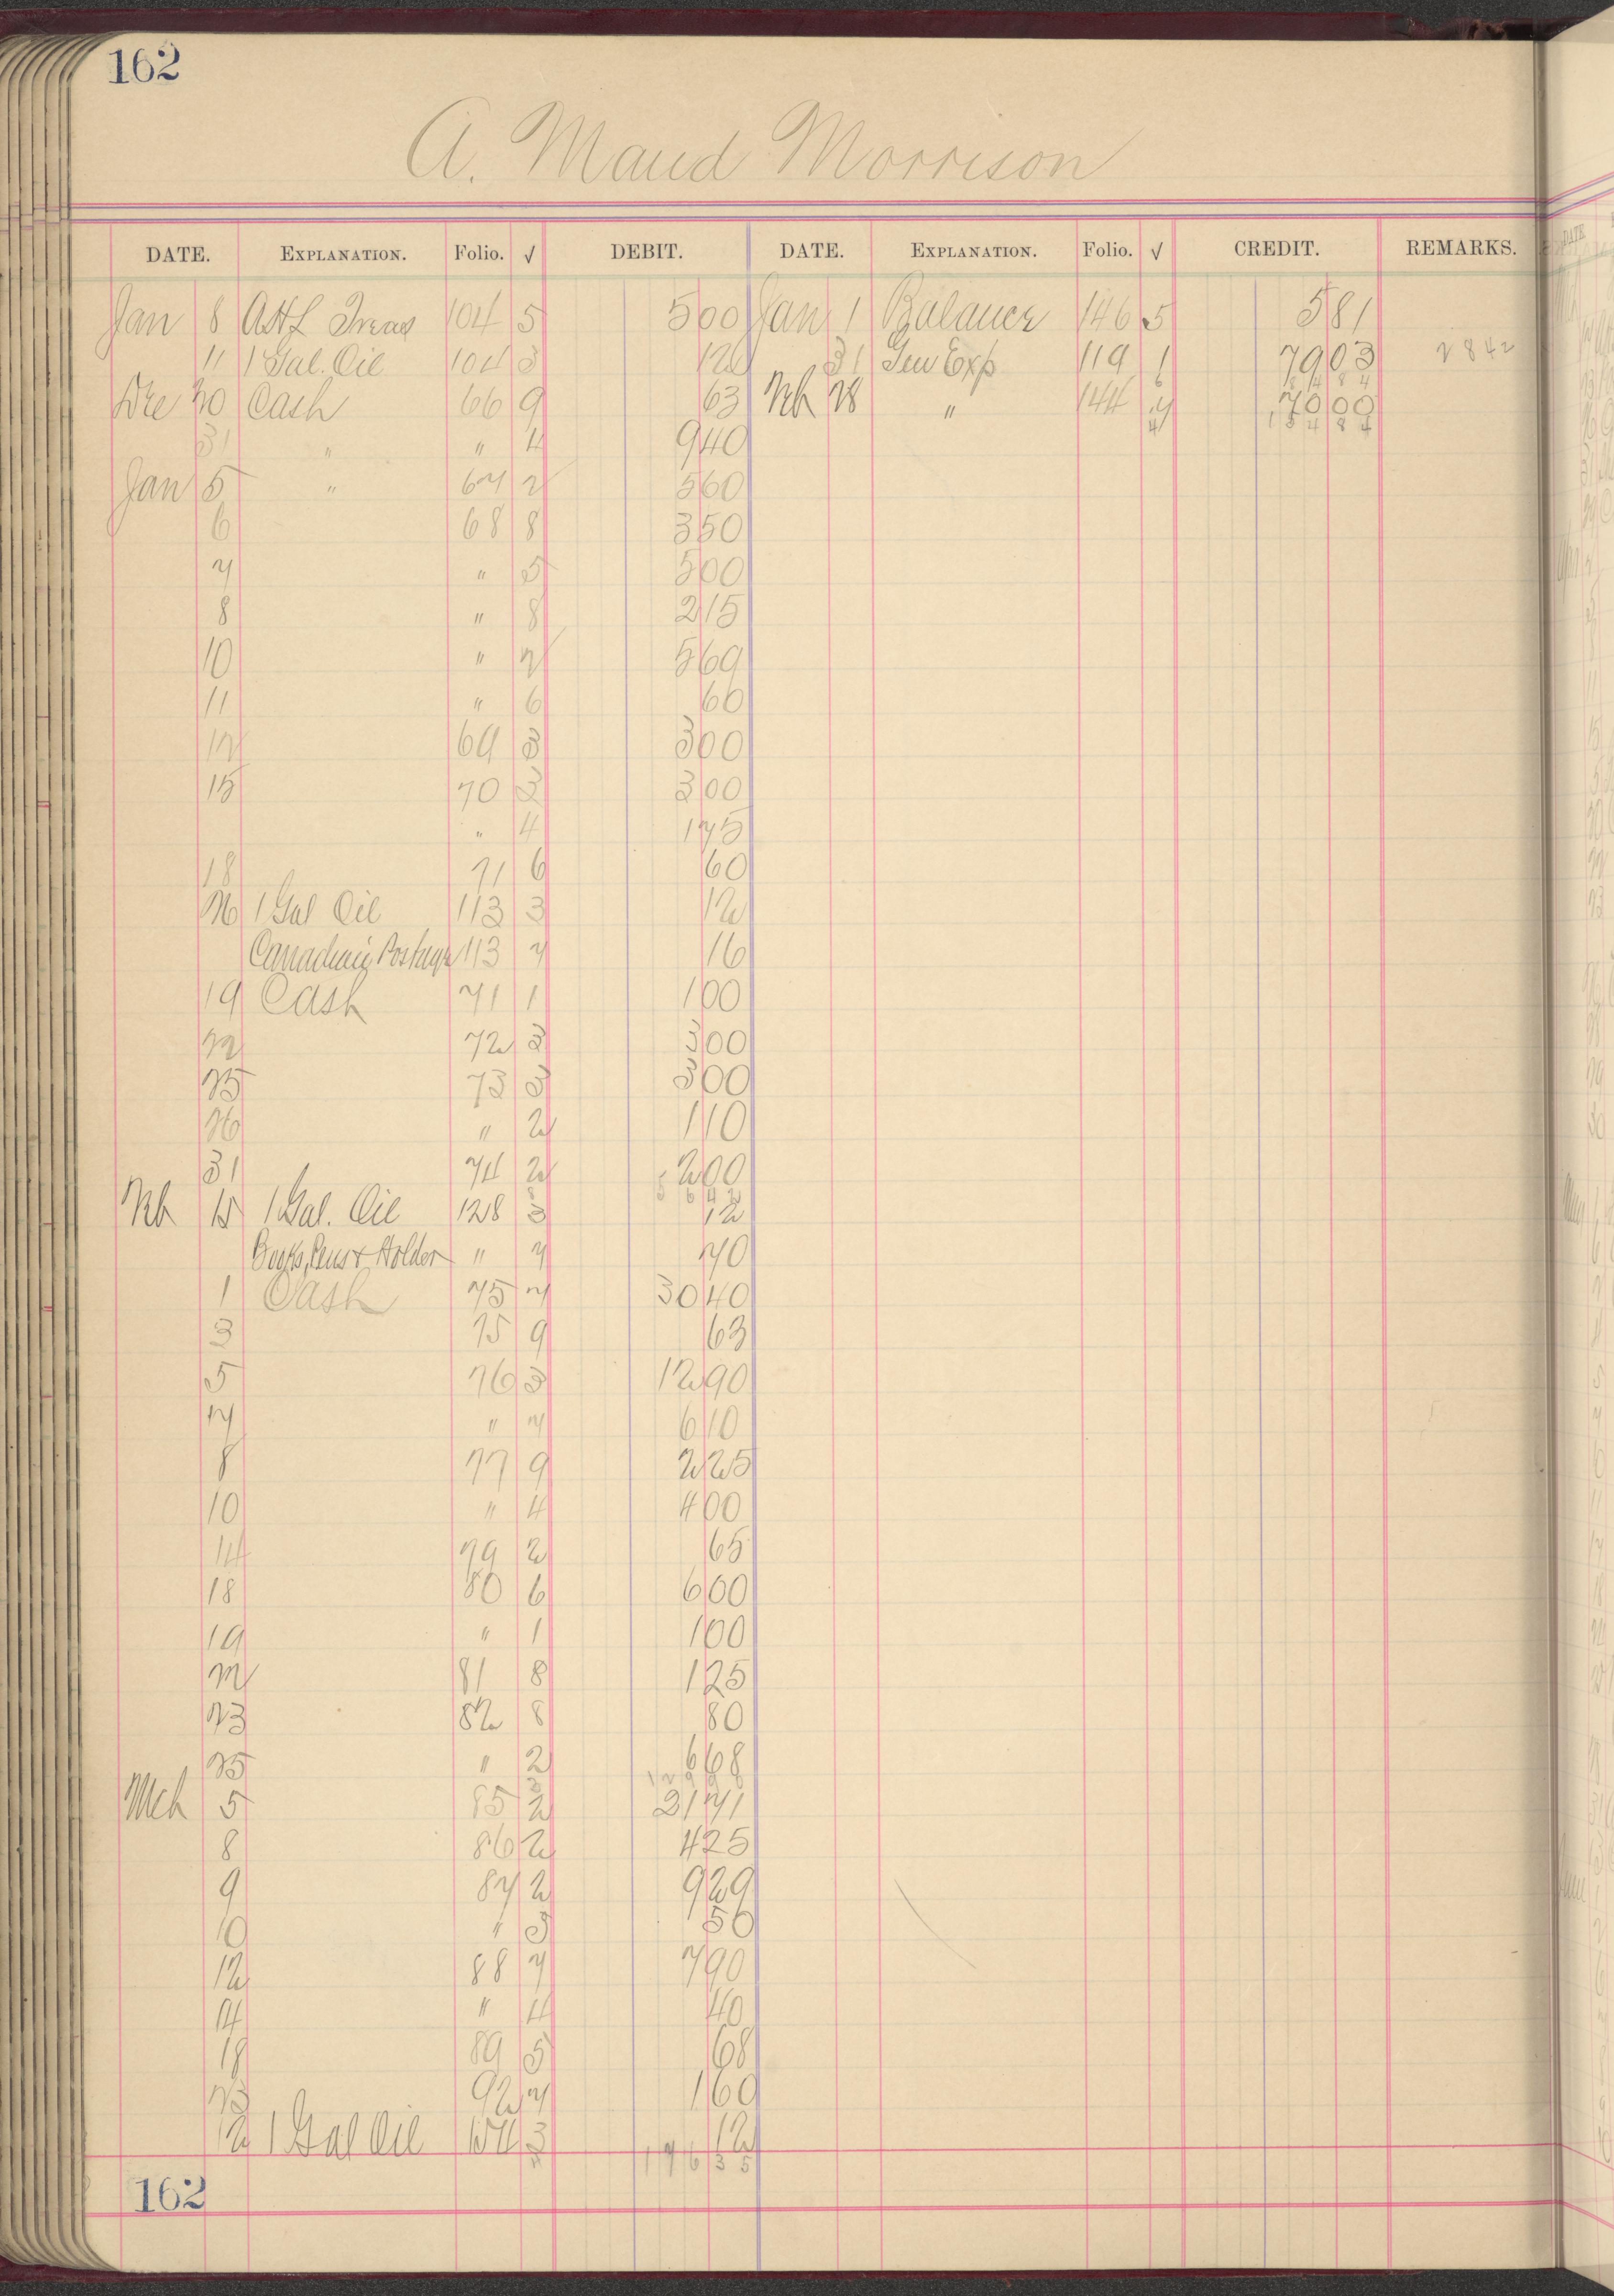 162
A. Maud Morrison
DATE. EXPLANATION. Folio. √ DEBIT. DATE. EXPLANATION. Folio. √ CREDIT. REMARKS.
Jan 8 104 5 5 00 Jan 1 Balance 146 5 5 81
11 1 Gal. Oil 104 3 12 31 Gen Exp 119 1 79 03 2842
Dec 30 Cash 66 9 63 Feb 28 " 144 7 70 00
31 " " 4 9 40 154 84
Jan 5 " 67 2 5 60
6 68 8 3 50
7 " 5 5 00
8 " 8 2 15
10 " 2 5 69
11 " 6 60
12 69 3 3 00
15 70 3 3 00
" 4 1 75
18 71 6 60
26 1 Gal Oil 113 3 12
Postage 113 7 16
19 Cash 71 1 1 00
22 72 3 3 00
25 73 3 3 00
26 " 2 1 10
31 74 2 2 00
Feb 15 1 Gal. Oil 128 3 12
Books, Pens & Holder " 7 70
1 Cash 75 7 30 40
3 75 9 63
5 76 3 12 90
7 " 7 6 10
8 77 9 2 25
10 " 4 4 00
14 79 2 65
18 80 6 6 00
19 " 1 1 00
81 8 1 25
23 82 8 80
25 " 2 6 68
Mch 5 85 2 21 71
8 86 2 4 25
9 87 2 9 29
10 " 3 50
12 88 7 7 90
14 " 4 40
18 89 5 68
23 92 7 1 60
12 1 Gal Oil 3 12
176 35
162